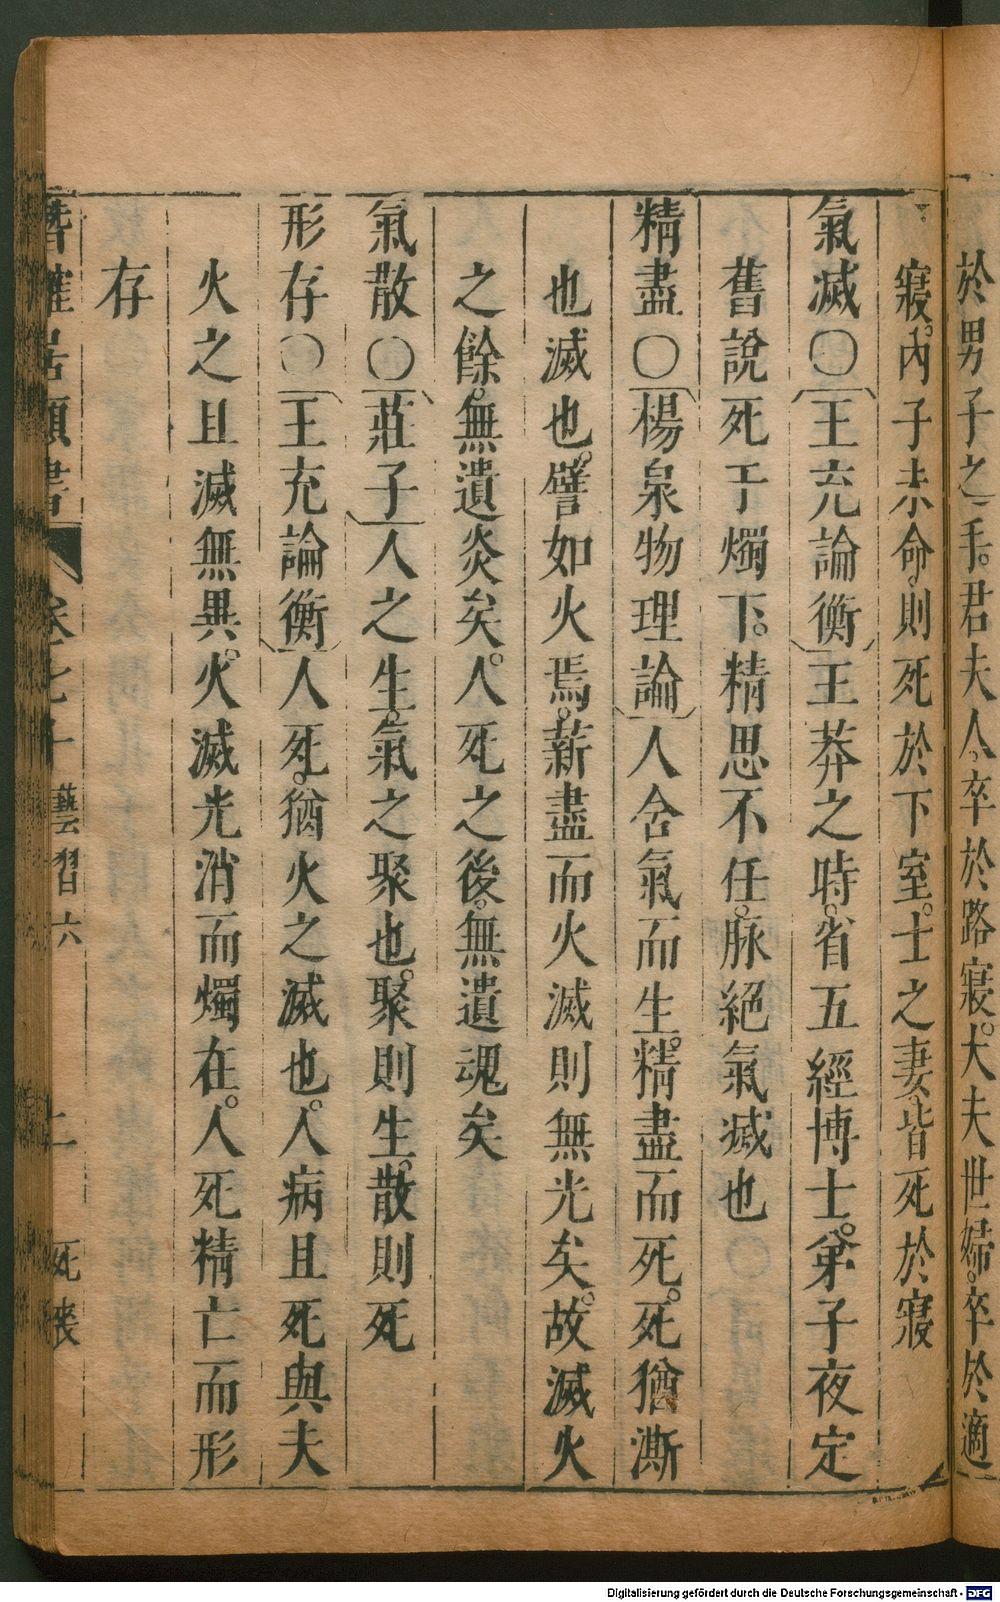 於男子之手君夫人卒於路寢大夫世婦卒於適
寢內子未命則死於下室士之妻皆死於寢
氣滅〇王充論衡王莽之時省五經博士弟子夜定
舊說死于燭下精思不任脉絕氣滅也
精盡〇楊泉物理論人含氣而生精盡而死死猶澌
也滅也譬如火焉薪盡而火滅則無光矣故滅火
之餘無遺炎矣人死之後無遺魂矣
氣散〇莊子人之生氣之聚也聚則生散則死
形存〇王充論衡人死猶火之滅也人病且死與夫
火之且滅無異火滅光消而燭在人死精亡而形
存
居類書 卷 藝習六 死喪
Digitalisierung gefördert durch die Deutsche Forschungsgemeinschaft - DFG